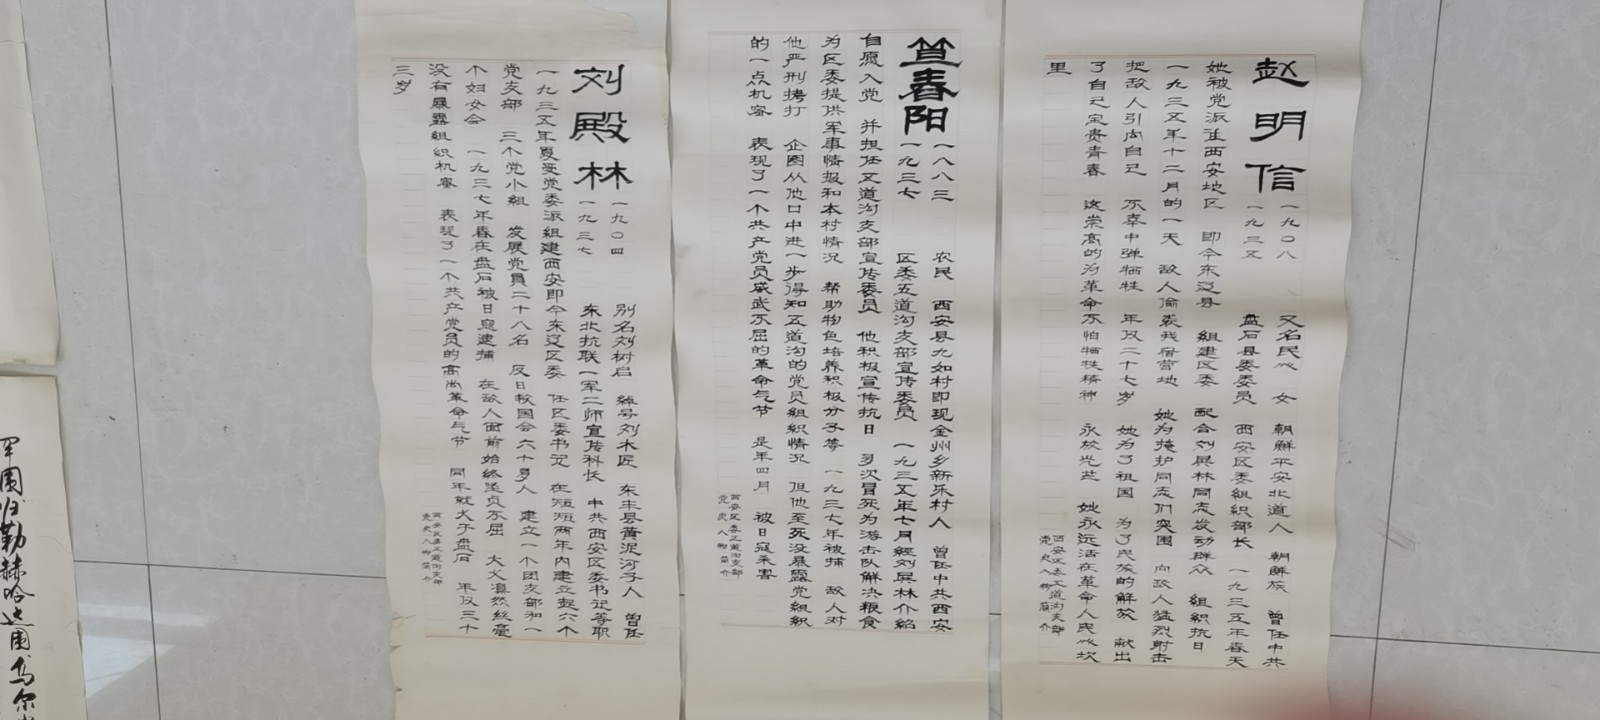 赵明信
一九〇八
一九三五
又名民心 女 朝鲜平安北道人 朝鲜族 曾任中共
盘石县委委员 西安区委组织部长 一九三五年春天
她被党派往西安地区 即今东辽县 组建区委 配合刘殿林同志发动群众 组织抗日
一九三五年十二月的一天 敌人偷袭我宿营地 她为掩护同志们突围 向敌人猛烈射击
把敌人引向自己 不幸中弹牺牲 年仅二十七岁 她为了祖国 为了民族的解放 献出
了自己宝贵青春 这崇高的为革命不怕牺牲精神 永放光芒 她永远活在革命人民心坎
里
西安区委五道沟支部
党史人物简介
笪春阳
一八八三
一九三七
农民 西安县九如村即现金州乡新乐村人 曾任中共西安
区委五道沟支部宣传委员 一九三五年七月经刘殿林介绍
自愿入党 并担任五道沟支部宣传委员 他积极宣传抗日 多次冒死为游击队解决粮食
为区委提供军事情报和本村情况 帮助物色培养积极分子等 一九三七年被捕 敌人对
他严刑拷打 企图从他口中进一步得知五道沟的党员组织情况 但他至死没暴露党组织
的一点机密 表现了一个共产党员威武不屈的革命气节 是年四月 被日寇杀害
西安区委五道沟支部
党史人物简介
刘殿林
一九〇四
一九三七
别名刘树启 绰号刘木匠 东丰县黄泥河子人 曾任
东北抗联一军二师宣传科长 中共西安区委书记等职
一九三五年夏受党委派组建西安即今东辽区委 任区委书记 在短短两年内建立起六个
党支部 三个党小组 发展党員二十八名 反日救国会六十多人 建立一个团支部和一
个妇女会 一九三七年春在盘石被日寇逮捕 在敌人面前始终坚贞不屈 大义凛然丝毫
没有暴露组织机密 表现了一个共产党员的高尚革命气节 同年就义于盘石 年仅三十
三岁
西安区委五道沟支部
党史人物简介
罕围归勒赫哈达围乌尔